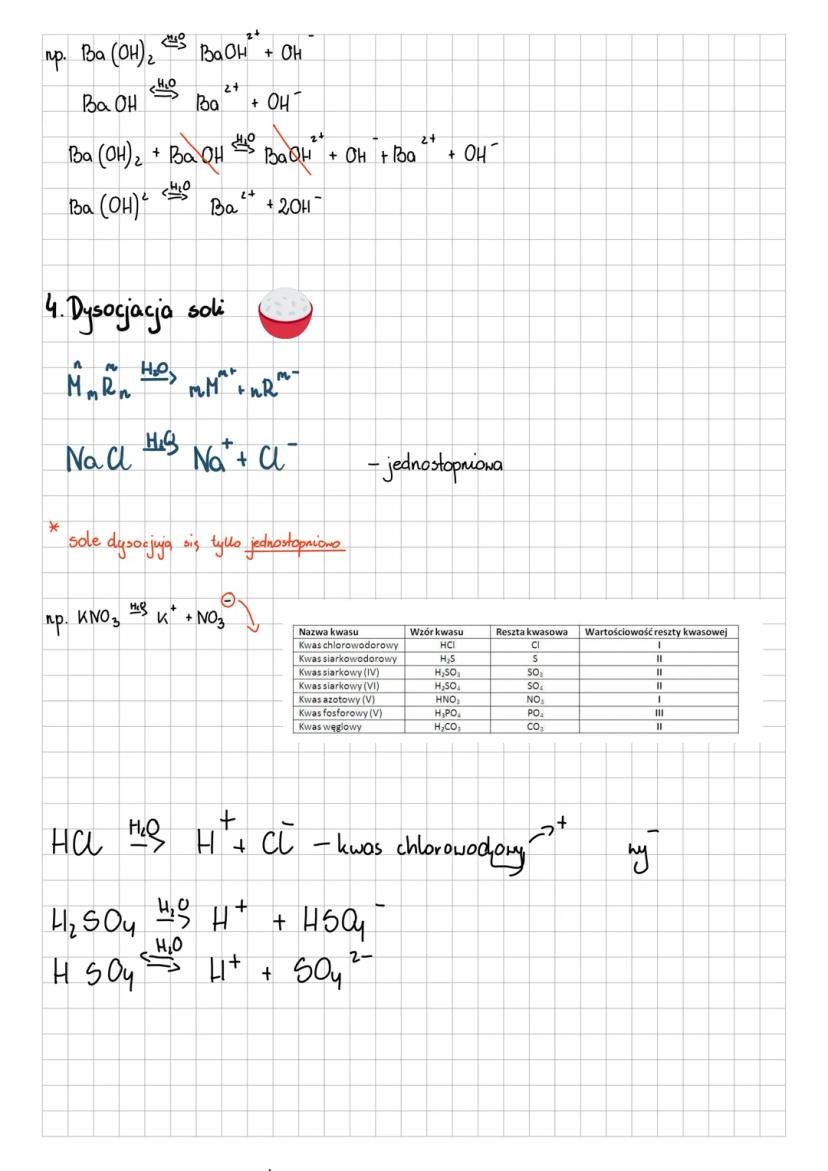 np. Ba(OH)₂ ⇌ H₂O BaOH²⁺ + OH⁻
BaOH ⇌ H₂O Ba²⁺ + OH⁻
Ba(OH)₂ + BaOH ⇌ H₂O BaOH²⁺ + OH⁻ + Ba²⁺ + OH⁻
Ba(OH)² ⇌ H₂O Ba²⁺ + 2OH⁻
4. Dysocjacja soli
MₘRₙ → H₂O mMⁿ⁺ + nRᵐ⁻
NaCl → H₂O Na⁺ + Cl⁻ – jednostopniowa
* sole dysocjują się tylko jednostopniowo
np. KNO₃ → H₂O K⁺ + NO₃⊖
Nazwa kwasu Wzór kwasu Reszta kwasowa Wartościowość reszty kwasowej
Kwas chlorowodorowy HCl Cl I
Kwas siarkowodorowy H₂S S II
Kwas siarkowy (IV) H₂SO₃ SO₃ II
Kwas siarkowy (VI) H₂SO₄ SO₄ II
Kwas azotowy (V) HNO₃ NO₃ I
Kwas fosforowy (V) H₃PO₄ PO₄ III
Kwas węglowy H₂CO₃ CO₃ II
HCl → H₂O H⁺ + Cl⁻ – kwas chlorowodowy + ny⁻
H₂SO₄ → H₂O H⁺ + HSO₄⁻
HSO₄ ⇌ H₂O H⁺ + SO₄²⁻